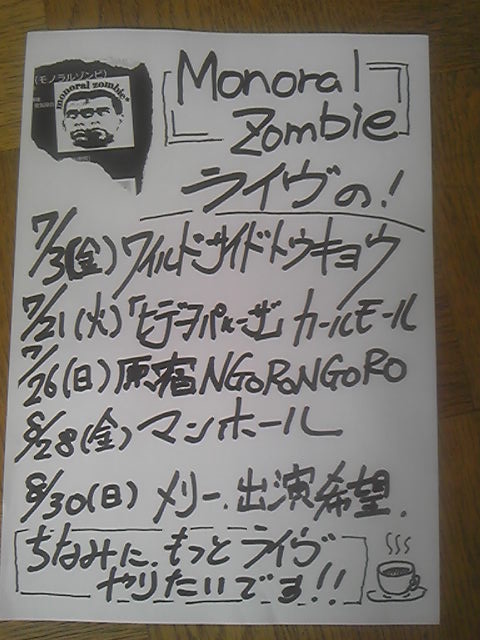 (モノラルゾンビ)
monoral zombie
Monoral
Zombie
ライヴの!
7/3(金)ワイルドサイドトウキョウ
7/21(火)「ヒデヲパルーザ カールモール
7/26(日)原宿NGORONGORO
8/28(金)マンホール
8/30(日)メリー.出演希望.
ちなみに.もっとライヴ
やりたいです!!